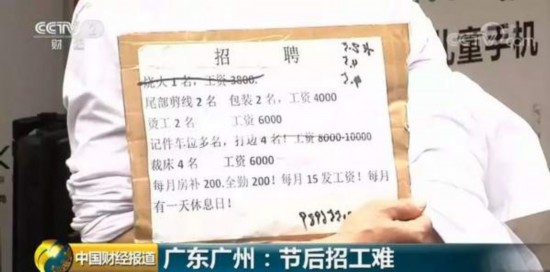 CCTV 2
财经
儿童手机
招 聘
烧大1名,工资3800.
尾部剪线2名 包装2名,工资4000
烫工2名 工资6000
记件车位多名,打边4名!工资8000-10000
裁床4名 工资6000
每月房补200.全勤200!每月15发工资!每月
有一天休息日!
中国财经报道
广东广州:节后招工难